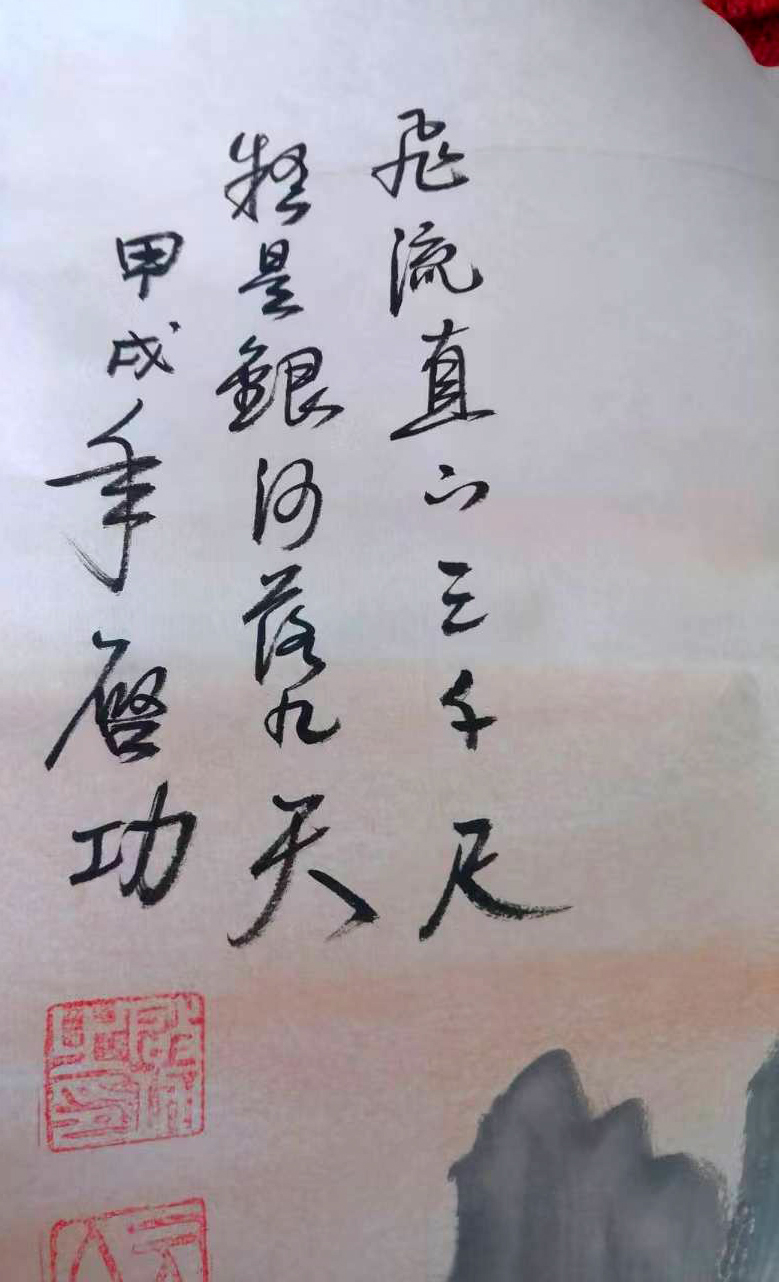 飛流直下三千尺
疑是銀河落九天
甲戌年啓功